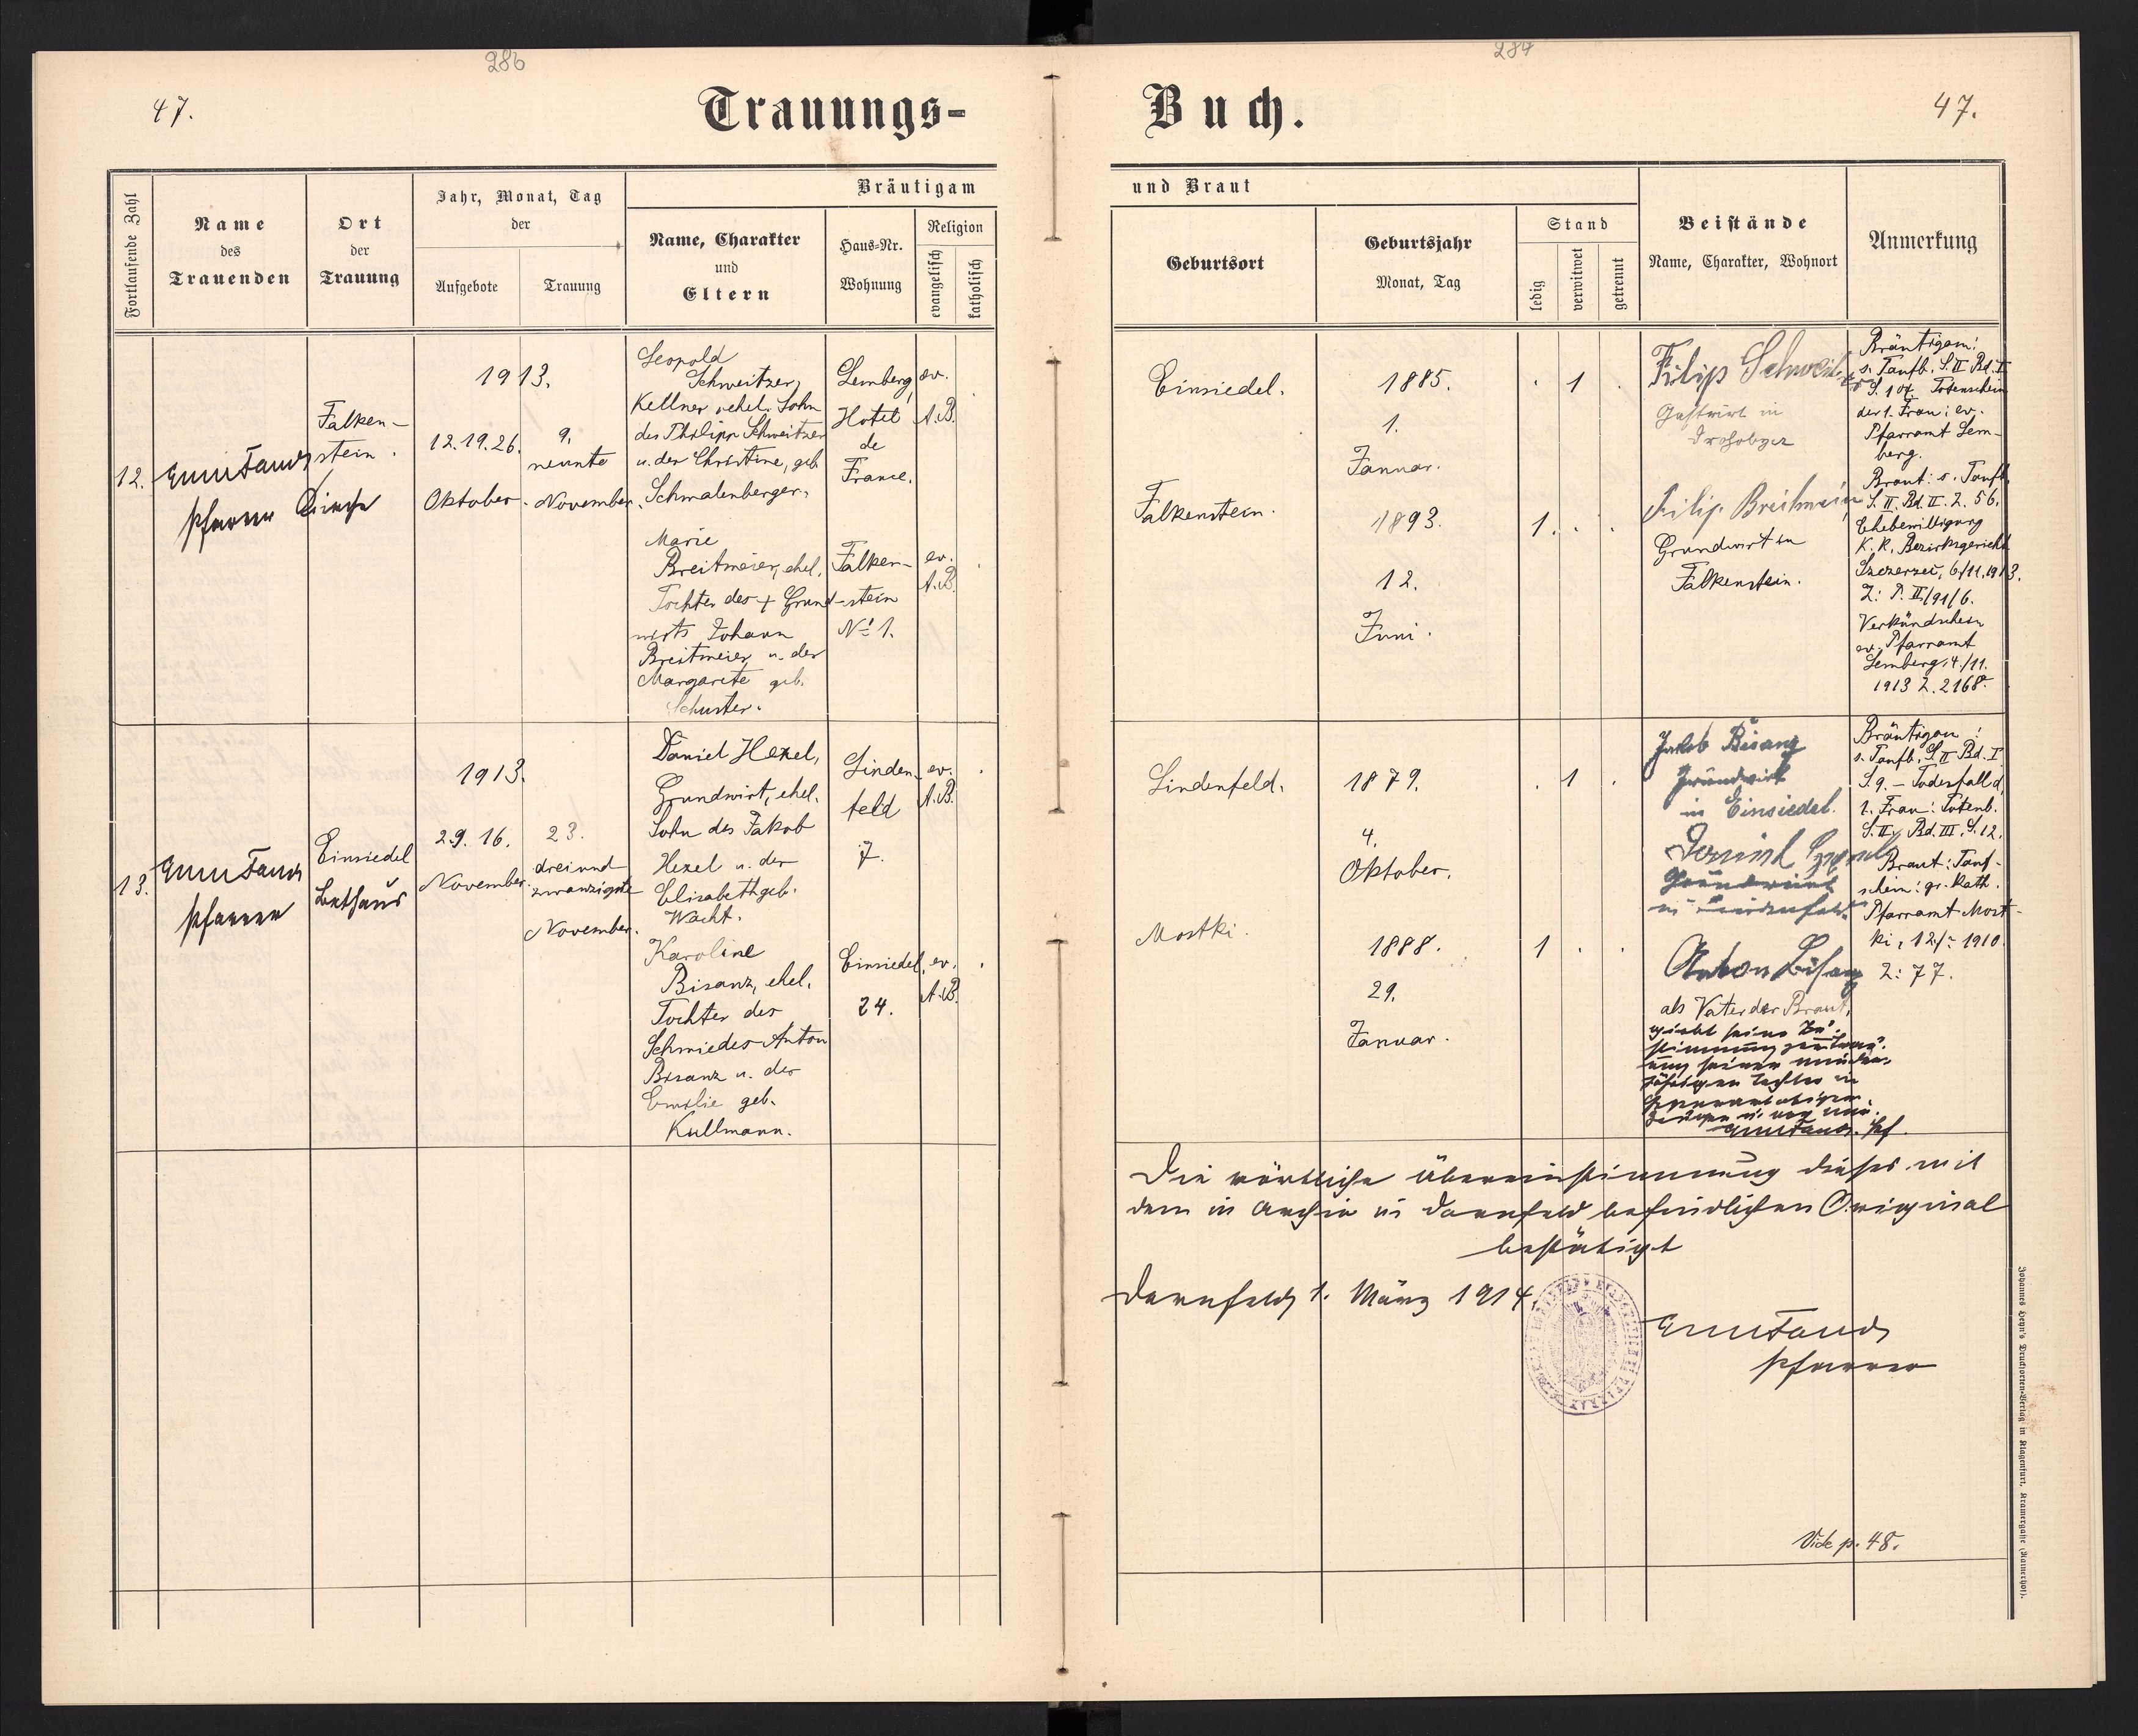 286
287
47.
Trauungs-
Buch.
47.
Fortlaufende Zahl
Name
des
Trauenden
Ort
der
Trauung
Jahr, Monat, Tag
der
Aufgebote
Trauung
Bräutigam
Name, Charakter
und
Eltern
Haus-Nr.
Wohnung
Religion
evangelisch
katholisch
und Braut
Geburtsort
Geburtsjahr
Monat, Tag
Stand
ledig
verwitwet
getrennt
Beistände
Name, Charakter, Wohnort
Anmerkung
12.
Pfarrer
Falken-
stein.
Kirche
1913.
12.19.26.
Oktober.
9.
neunte
November.
Leopold
Schweitzer,
Kellner, ehel. Sohn
des Philipp Schweitzer
u. der Christine, geb.
Schmalenberger.
Lemberg,
Hotel
de
France.
ev.
A.B.
Marie
Breitmeier, ehel.
Tochter des + Grund-
wirts Johann
Breitmeier u. der
Margarete geb.
Schuster.
Falken-
stein
No 1.
ev.
A.B.
Einsiedel.
1885.
1.
Januar.
. 1 .
Falkenstein.
1893.
12.
Juni.
1. . .
Filip Schweitzer
Gastwirt in
Drohobycz
Filip Breitmeier
Grundwirt in
Falkenstein.
Bräutigam:
s. Taufb. S. II Bd. I
S. 107. Totenschein
der 1. Frau: ev.
Pfarramt Lem-
berg.
Braut: s. Taufb.
S. II. Bd. II. Z. 56.
Ehebewilligung
K. K. Bezirksgericht
Szczerzec, 6/11. 1913.
Z: P. II/91/6.
Verkündschein
ev. Pfarramt
Lemberg, 4./11.
1913 Z. 2168.
13.
Pfarrer
Einsiedel
Bethaus
1913.
2.9. 16.
November.
23.
dreiund
zwanzigste
November.
Daniel Hexel,
Grundwirt, ehel.
Sohn des Jakob
Hexel u. der
Elisabeth geb.
Wacht.
Linden-
feld
7.
ev.
A.B.
Karoline
Bisanz, ehel.
Tochter des
Schmiedes Anton
Bisanz u. der
Emilie geb.
Kullmann.
Einsiedel,
24.
ev.
A.B.
Lindenfeld.
1879.
4.
Oktober.
. 1 .
Mostki.
1888.
29.
Januar.
1 . .
Jakob Bisanz
Grundwirt
in Einsiedel.
Grundwirt
in Lindenfeld
Anton Bisanz
als Vater der Braut,
Bräutigam:
s. Taufb. S. II Bd. I
S. 9. – Todesfall d.
1. Frau: Totenb.
S. II, Bd. III, S. 12.
Braut: Tauf-
schein: gr. Kath.
Pfarramt Most-
ki, 12/: 1910.
Z: 77.
Die wörtliche Übereinstimmung dieses mit
dem in Archiv in Dornfeld befindlichen Original
bestätigt
Dornfeld, 1. März 1914.
Pfarrer
Vide p. 48.
Johannes Heyn's Drucksorten-Verlag in Klagenfurt, Kramergasse